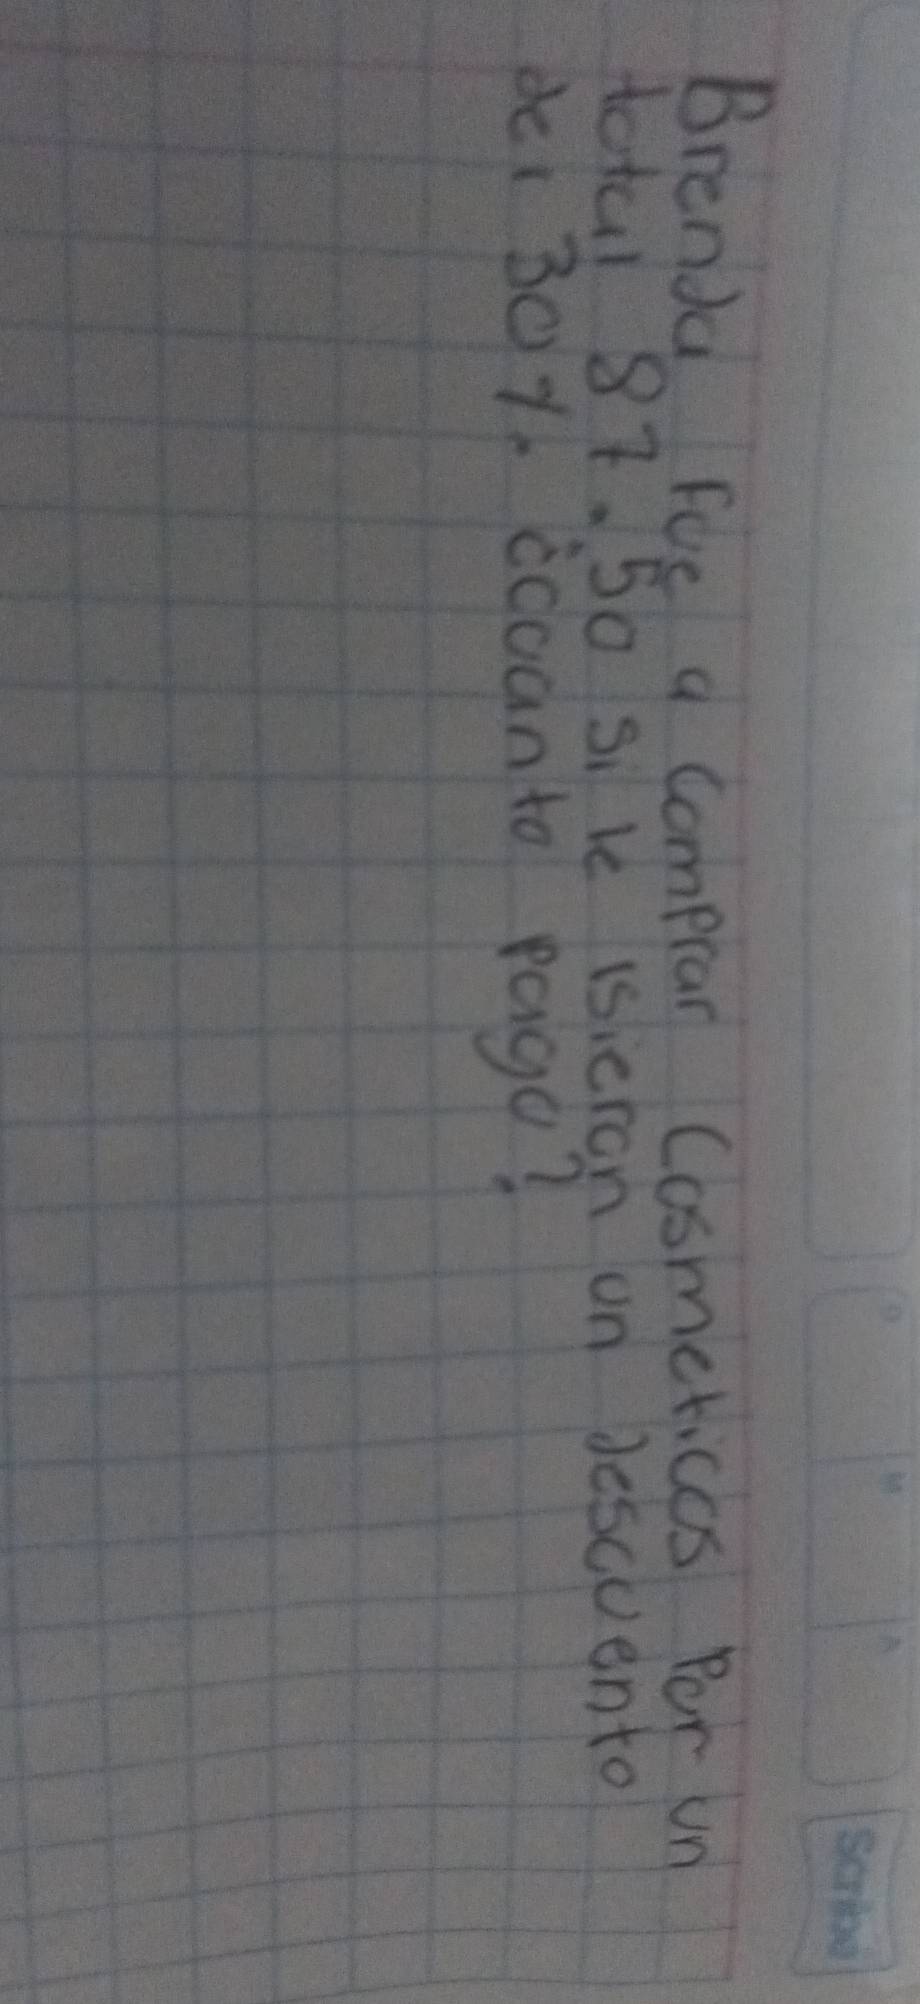 D M A Scribe
Brenda Fue a comprar Cosmeticos Por un
total 87.50 si le isieran un descuento
del 30%. ¿cuanto pago?